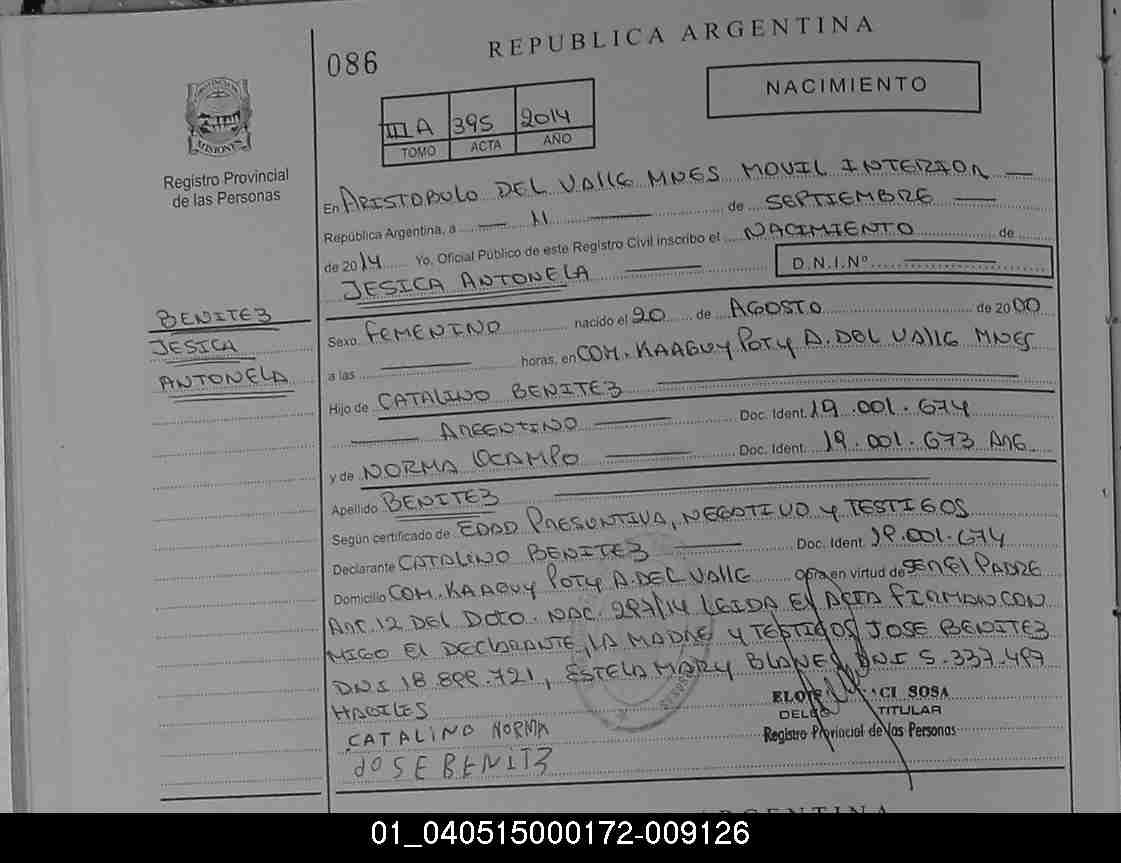 086
REPUBLICA ARGENTINA
NACIMIENTO
PROVINCIA DE
MISIONES
Registro Provincial
de las Personas
III A 395 2014
TOMO ACTA AÑO
En ARISTOBULO DEL VALLE MNES MOVIL INTERIOR
República Argentina, a 11 de SEPTIEMBRE
de 2014 Yo, Oficial Público de este Registro Civil inscribo el NACIMIENTO de
JESICA ANTONELA D.N.I.Nº
BENITEZ
JESICA
ANTONELA
Sexo FEMENINO nacido el 20 de AGOSTO de 2000
a las horas, en COM. KAAGUY POTY A. DEL VALLE MNES
Hijo de CATALINO BENITEZ
ARGENTINO Doc. Ident. 19.001.674
y de NORMA OCAMPO Doc. Ident. 19.001.673 ARG
Apellido BENITEZ
Según certificado de EDAD PRESUNTIVA, NEGATIVO Y TESTIGOS
Declarante CATALINO BENITEZ Doc. Ident. 19.001.674
Domicilio COM. KAAGUY POTY A. DEL VALLE obra en virtud de SER EL PADRE
ART. 12 DEL DCTO. NAC. 297/14 LEIDA EL ACTA FIRMAN CON
MIGO EL DECLARANTE, LA MADRE Y TESTIGOS JOSE BENITEZ
DNI 18.899.721, ESTELA MARY BLANES, DNI 5.337.497
HABILES
CATALINO NORMA
JOSE BENITZ
SOSA
TITULAR
Registro Provincial de las Personas
ARGENTINA
01_040515000172-009126